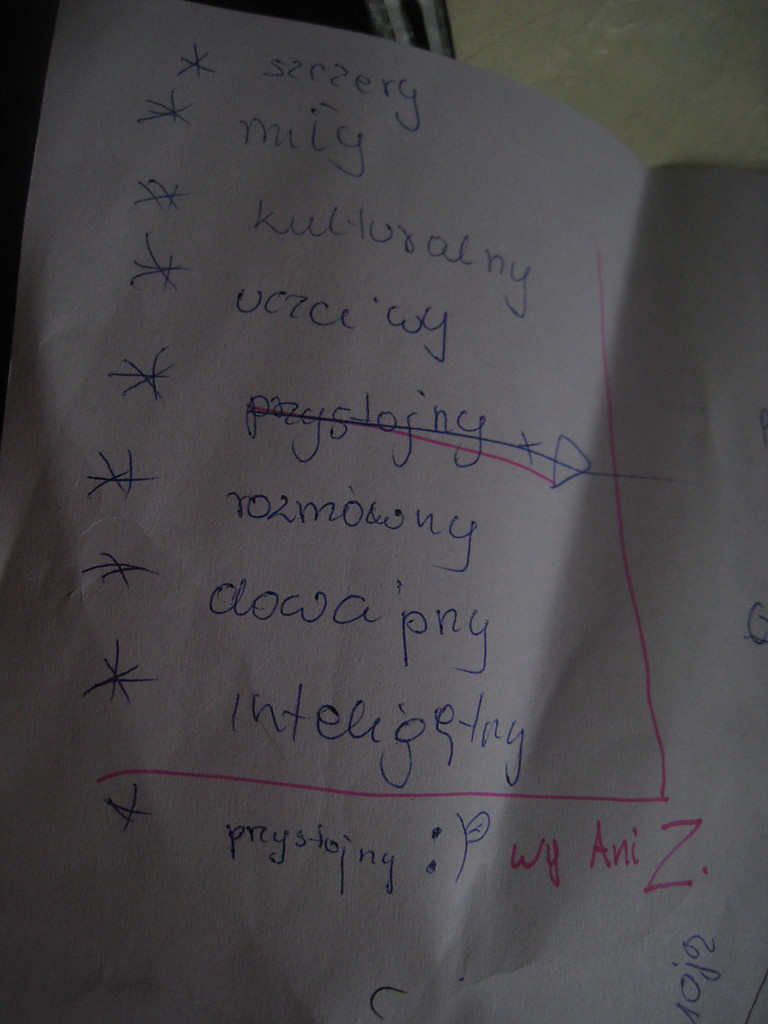 * szczery
* miły
* kulturalny
* uczciwy
* przystojny
* rozmówony
* dowcipny
* inteligętny
* przystojny :P wy Ani Z.